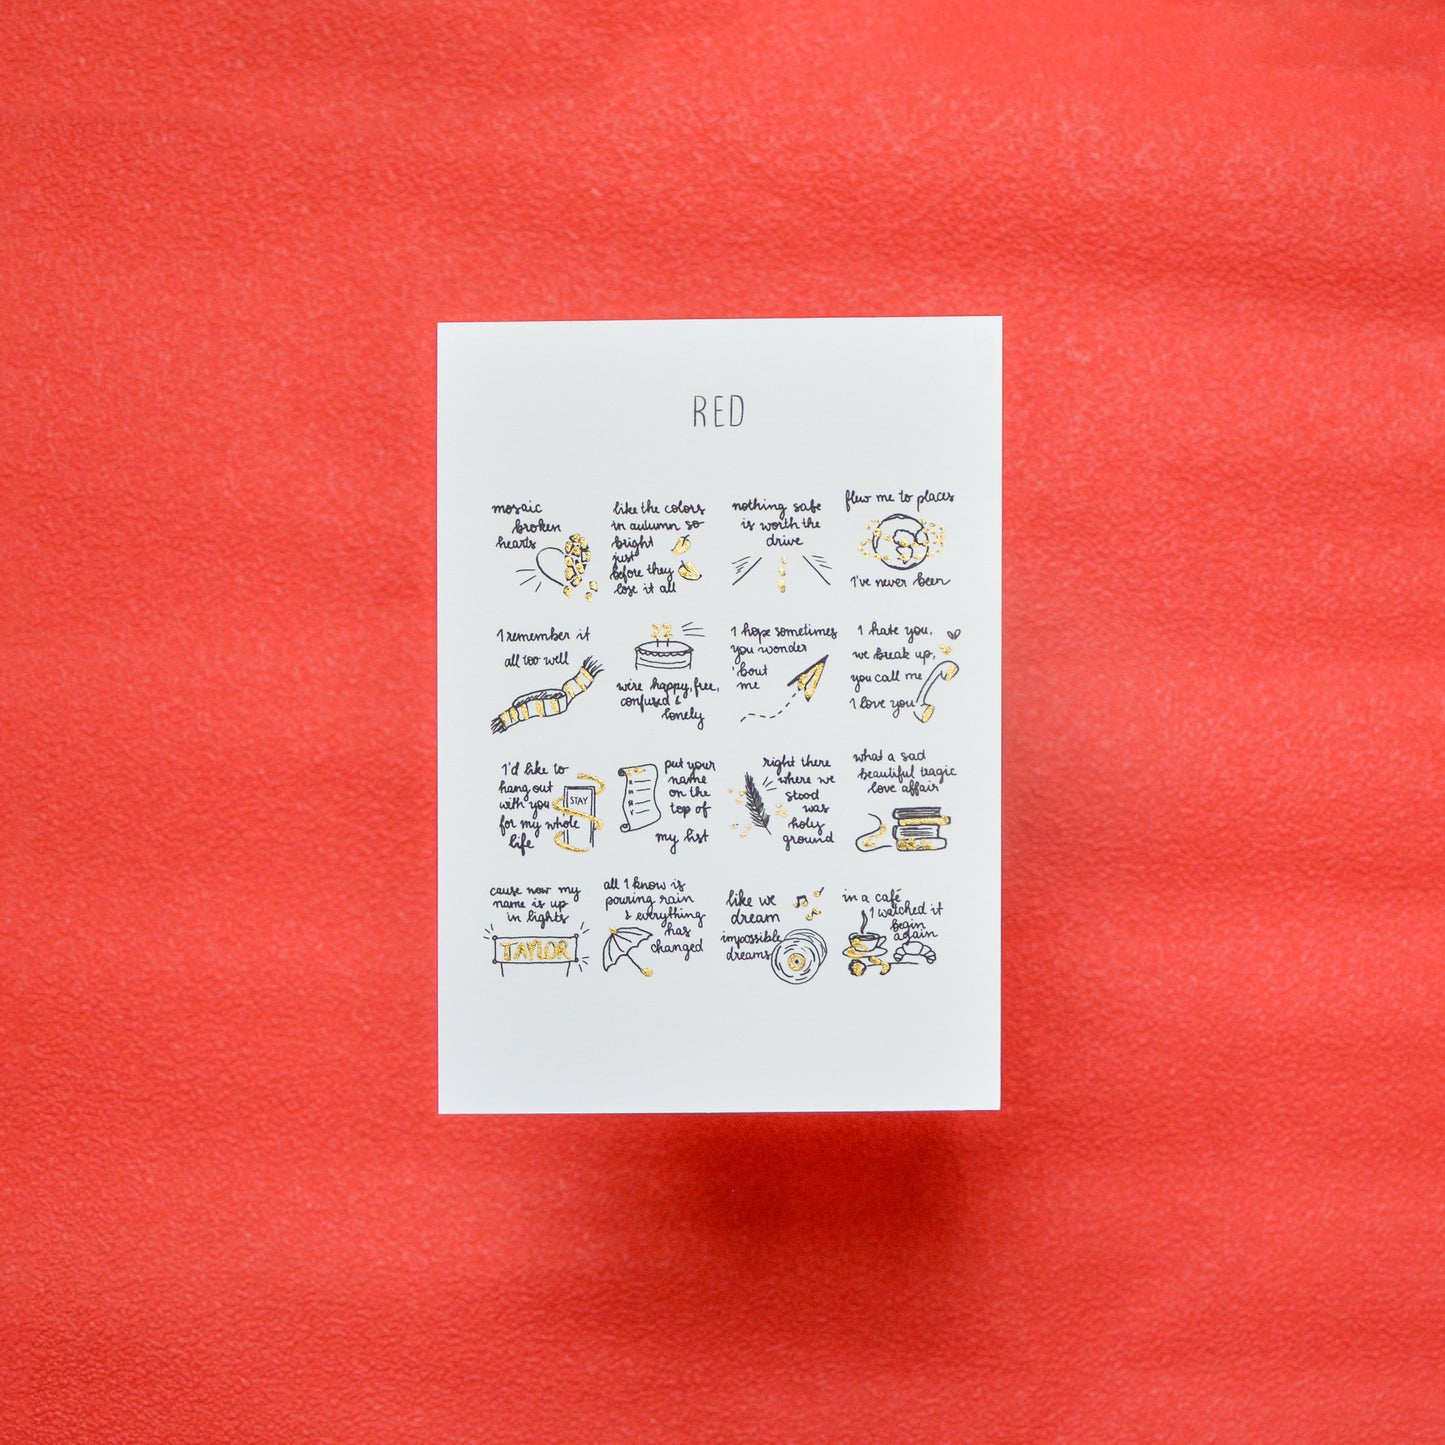 RED
mosaic
broken
hearts
like the colors
in autumn so
bright
just
before they
lose it all
nothing safe
is worth the
drive
flew me to places
I've never been
I remember it
all too well
22
we're happy, free,
confused &
lonely
I hope sometimes
you wonder
'bout
me
I hate you,
we break up,
you call me
I love you
I'd like to
hang out
with you
for my whole
life
STAY
put your
name
on the
top of
my list
right there
where we
stood
was
holy
ground
what a sad
beautiful tragic
love affair
cause now my
name is up
in lights
TAYLOR
all I know is
pouring rain
& everything
has
changed
like we
dream
impossible
dreams
in a café
I watched it
begin
again